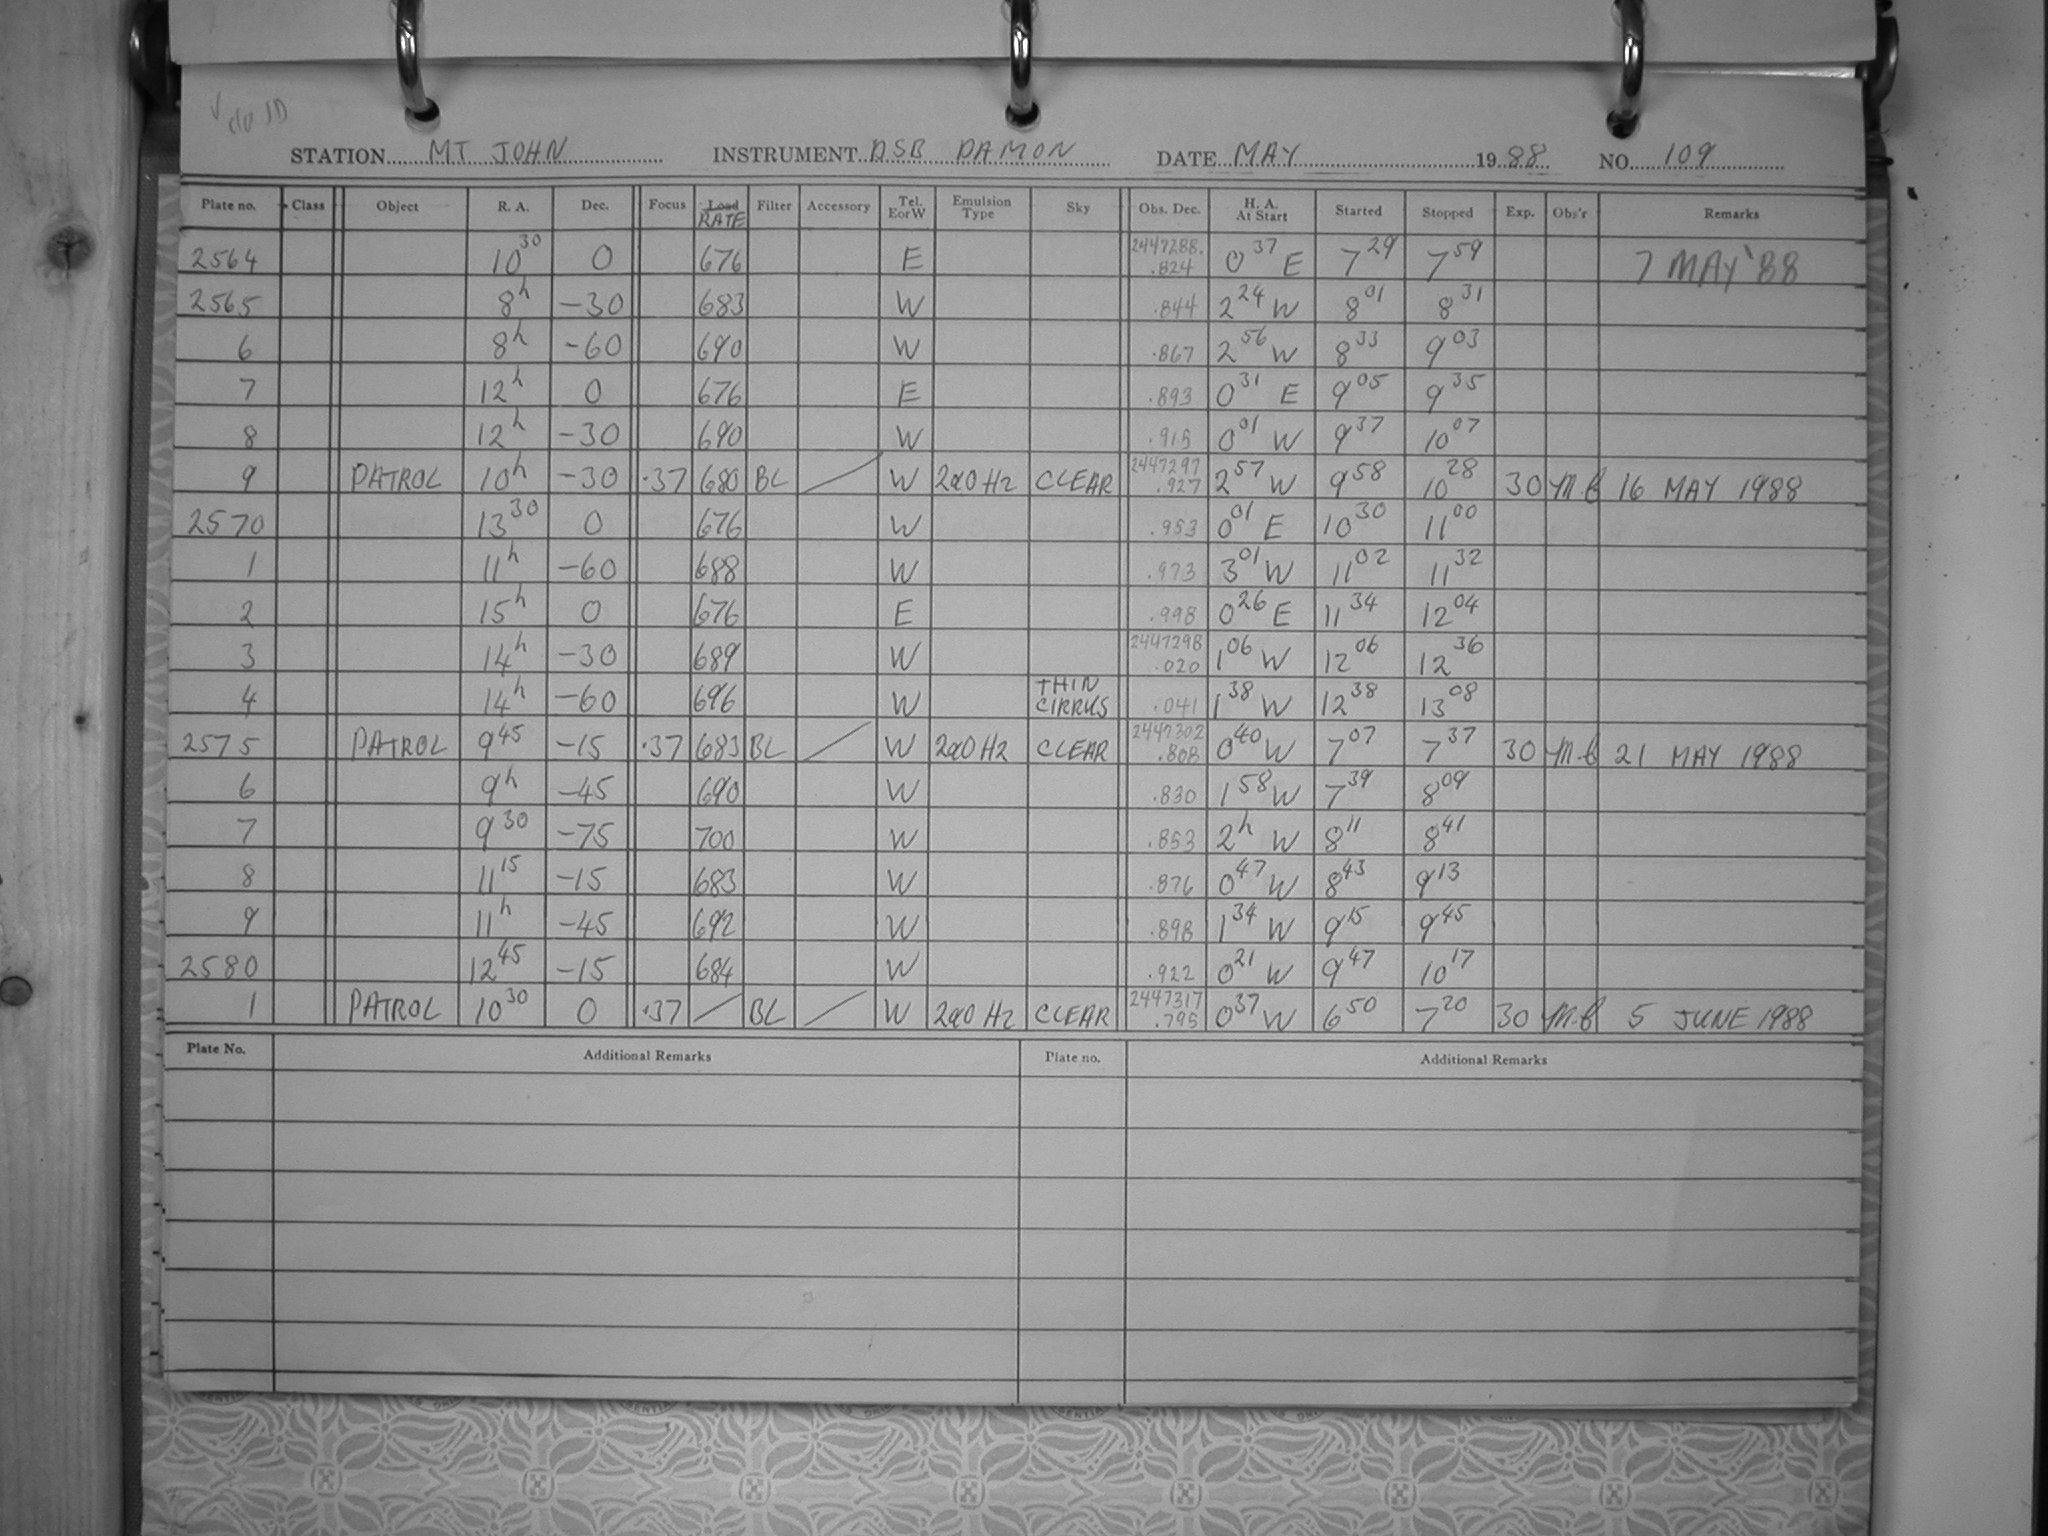 STATION MT JOHN INSTRUMENT DSB DAMON DATE MAY 1988 NO. 109
Plate no. Class Object R. A. Dec. Focus Load RATE Filter Accessory Tel. E or W Emulsion Type Sky Obs. Dec. H. A. At Start Started Stopped Exp. Obs'r Remarks
2564 10 30 0 676 E 2447288. .824 0 37 E 7 29 7 59 7 MAY '88
2565 8h -30 683 W .844 2 24 W 8 01 8 31
6 8h -60 690 W .867 2 56 W 8 33 9 03
7 12h 0 676 E .893 0 31 E 9 05 9 35
8 12h -30 690 W .915 0 01 W 9 37 10 07
9 PATROL 10h -30 .37 680 BL W 2a0 Hz CLEAR 2447297 .927 2 57 W 9 58 10 28 30 16 MAY 1988
2570 13 30 0 676 W .953 0 01 E 10 30 11 00
1 11h -60 688 W .973 3 01 W 11 02 11 32
2 15h 0 676 E .998 0 26 E 11 34 12 04
3 14h -30 689 W 2447298 .020 1 06 W 12 06 12 36
4 14h -60 696 W THIN CIRRUS .041 1 38 W 12 38 13 08
2575 PATROL 9 45 -15 .37 683 BL W 2a0 Hz CLEAR 2447302 .808 0 40 W 7 07 7 37 30 21 MAY 1988
6 9h -45 690 W .830 1 58 W 7 39 8 09
7 9 30 -75 700 W .853 2h W 8 11 8 41
8 11 15 -15 683 W .876 0 47 W 8 43 9 13
9 11h -45 692 W .898 1 34 W 9 15 9 45
2580 12 45 -15 684 W .922 0 21 W 9 47 10 17
1 PATROL 10 30 0 .37 BL W 2a0 Hz CLEAR 2447317 .795 0 37 W 6 50 7 20 30 5 JUNE 1988
Plate No. Additional Remarks Plate no. Additional Remarks